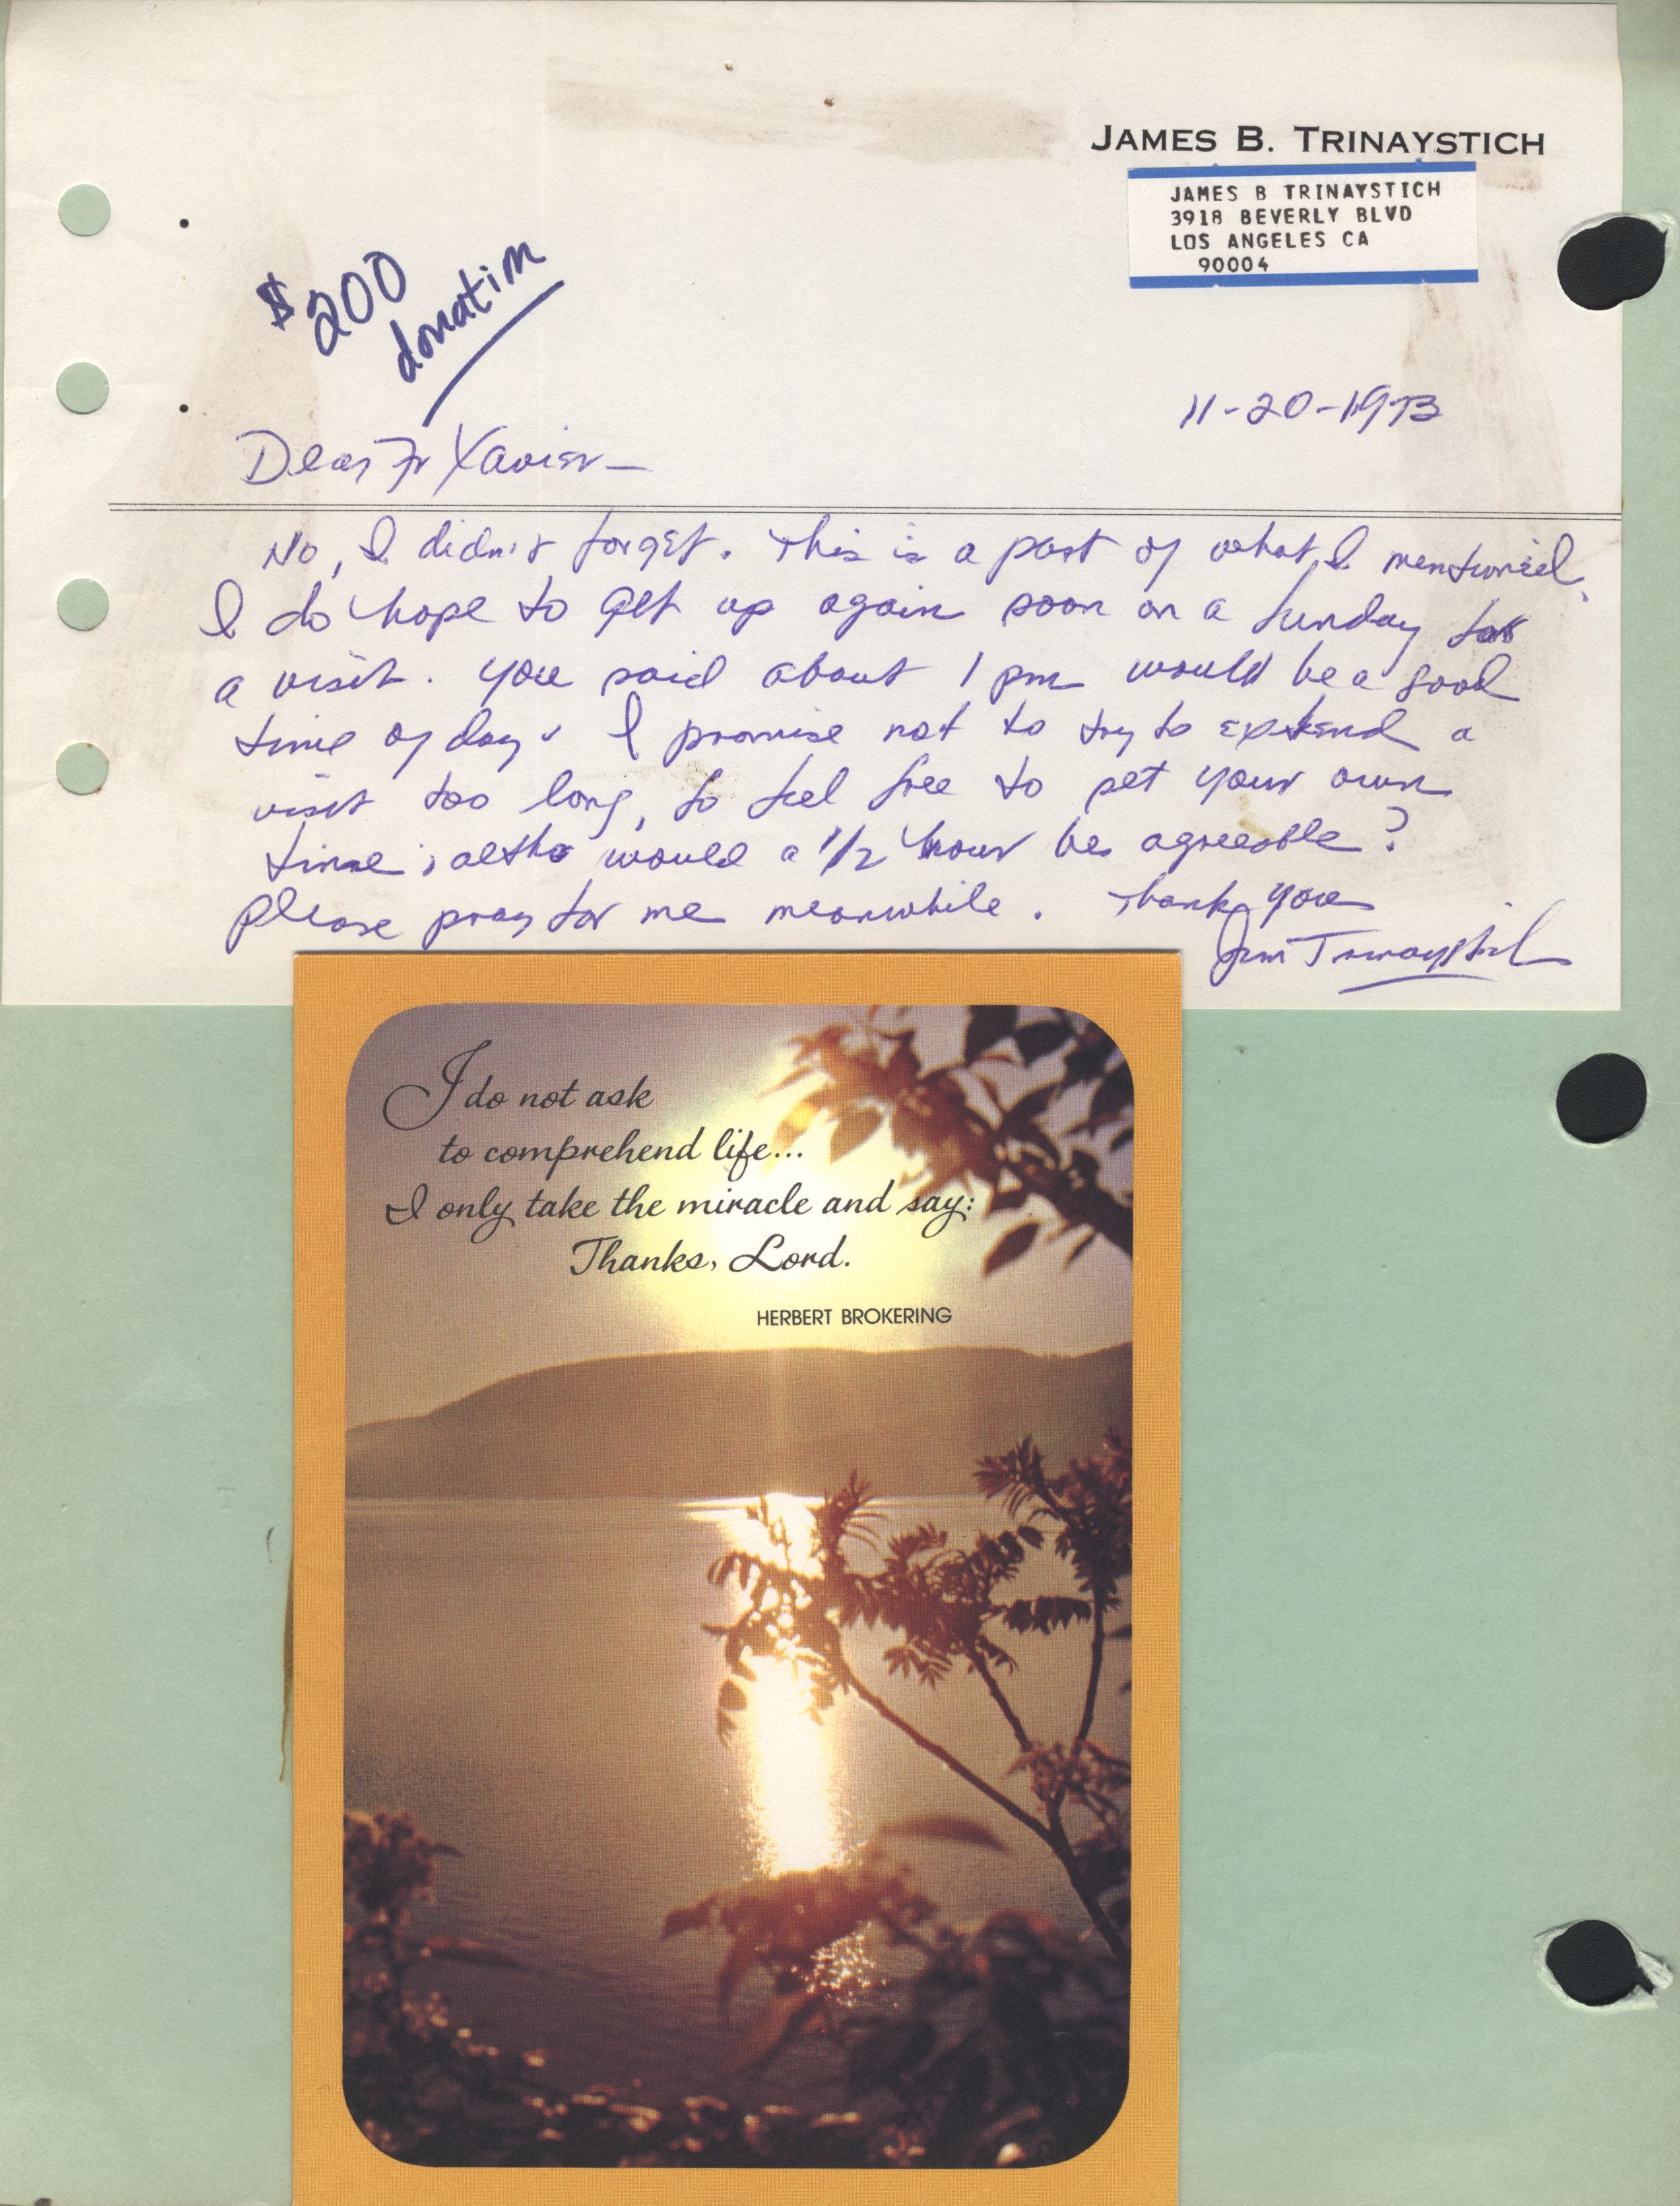 JAMES B. TRINAYSTICH
JAMES B TRINAYSTICH
3918 BEVERLY BLVD
LOS ANGELES CA
90004
$200
donation
11-20-1973
Dear Fr Xavier—
No, I didn't forget. This is a part of what I mentioned.
I do hope to get up again soon on a Sunday for
a visit. You said about 1 pm would be a good
time of day. I promise not to try to extend a
visit too long, so feel free to set your own
time; altho would a 1/2 hour be agreeable?
Please pray for me meanwhile. Thank you
Jim Trinaystich
I do not ask
to comprehend life...
I only take the miracle and say:
Thanks, Lord.
HERBERT BROKERING